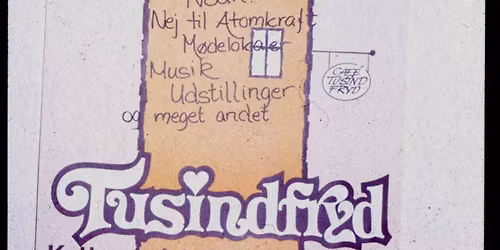 Nej til Atomkraft
Mødelokaler
Musik
Udstillinger
og meget andet
CAFÉ
TUSIND
FRYD
Tusindfryd